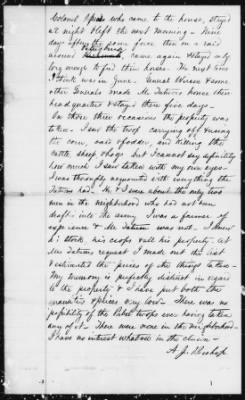 Colonel Spear who came to the house, stayed
at night & left the next morning – Nine
days after the same force then on a raid
around Petersburg, came again & stayed only
long enough to feed their horses. The next time
I think was in June. General Wilson & some
other Generals made Mr Tatums house their
head quarters & stay'd there five days –
On those three occasions the property was
taken – I saw the troops carrying off & using
the corn, oats & fodder, and killing the
cattle sheep & hogs but I cannot say definitely
how much I saw taken with my own eyes –
I was thoroughly acquainted with everything Mr
Tatum had – He & I were about the only two
men in the neighborhood who had not been
draft into the army I was a farmer of
experience & Mr Tatum was not – I knew
his stock, his crops & all his property. At
Mr Tatums request I made out this list
& estimated the prices of the things taken –
My memory is perfectly distinct in regard
to the property & I have put both the
quantities & prices very low – There was no
possibility of the Rebel troops ever having taken
any of it – There were none in the neighborhood –
I have no interest whatever in the claim –
A. J. Bishop